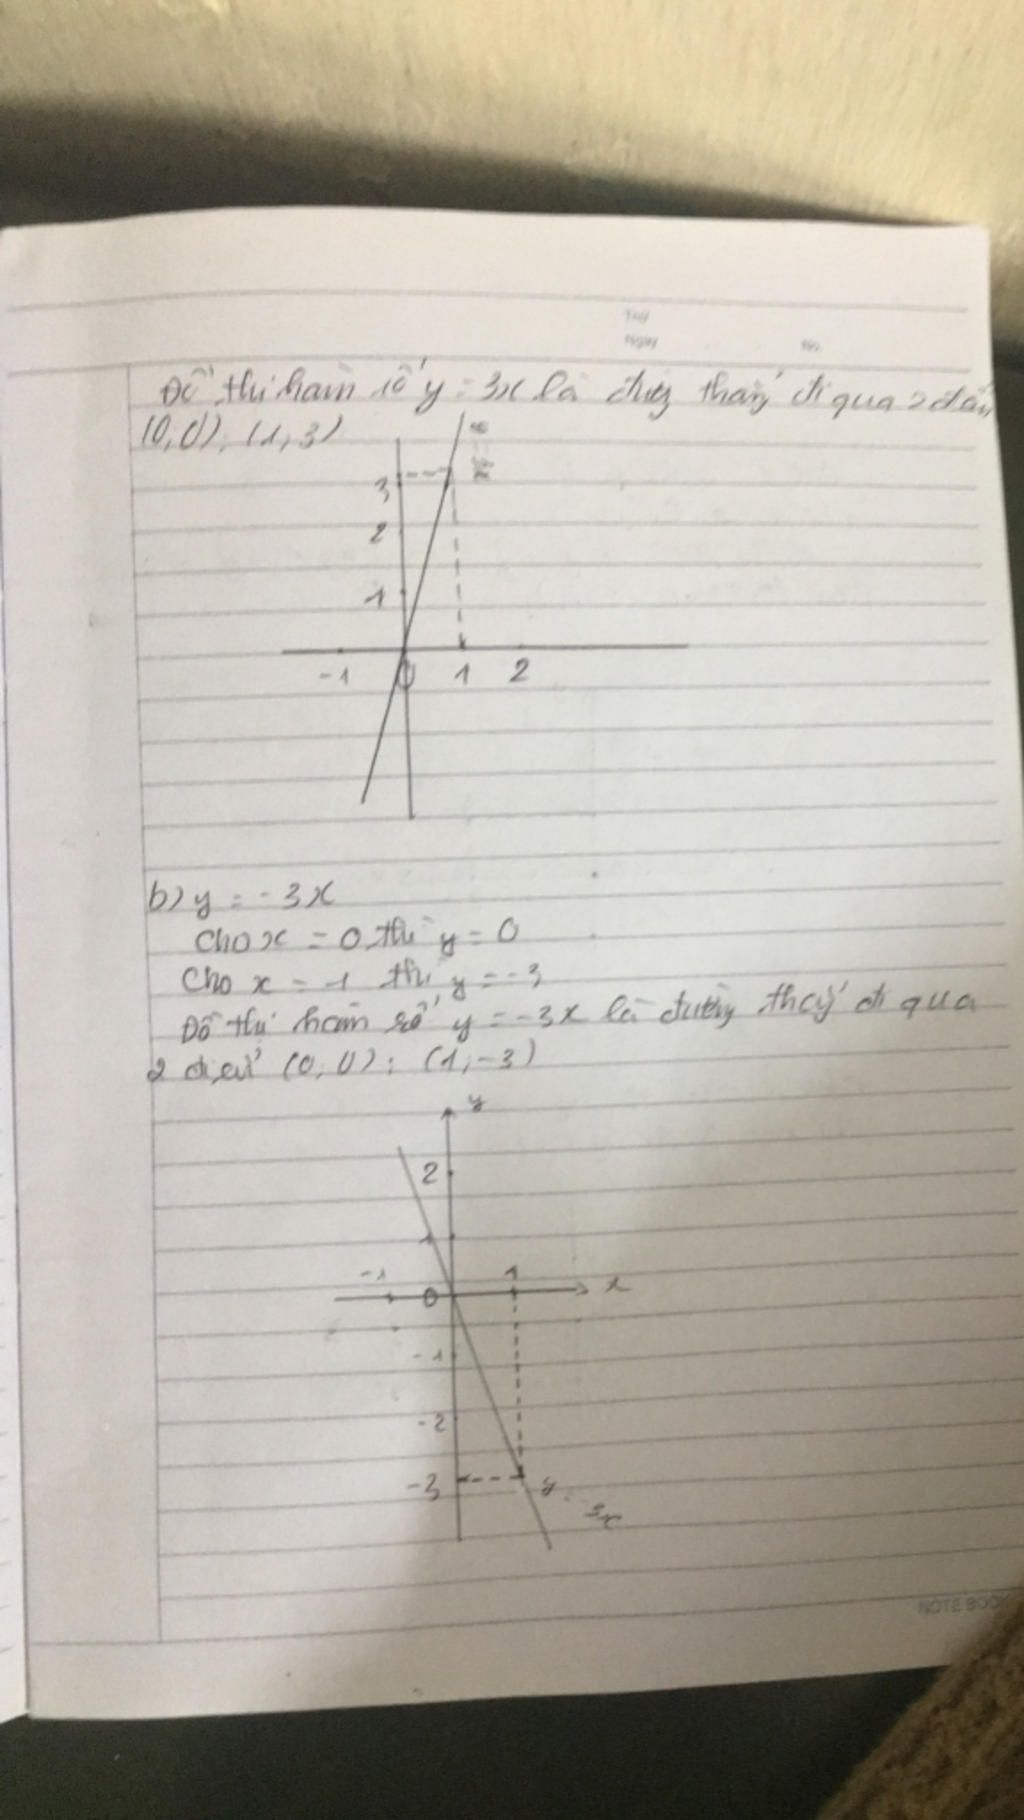 Thứ
Ngày No.
Đồ thị hàm số y = 3x là đường thẳng đi qua 2 điểm
(0,0), (1,3)
y
3
2
1
-1 0 1 2
b) y = -3x
Cho x = 0 thì y = 0
Cho x = 1 thì y = -3
Đồ thị hàm số y = -3x là đường thẳng đi qua
2 điểm (0,0); (1,-3)
y
2
1
-1 0 1 x
-1
-2
-3 y = -3x
NOTE BOOK